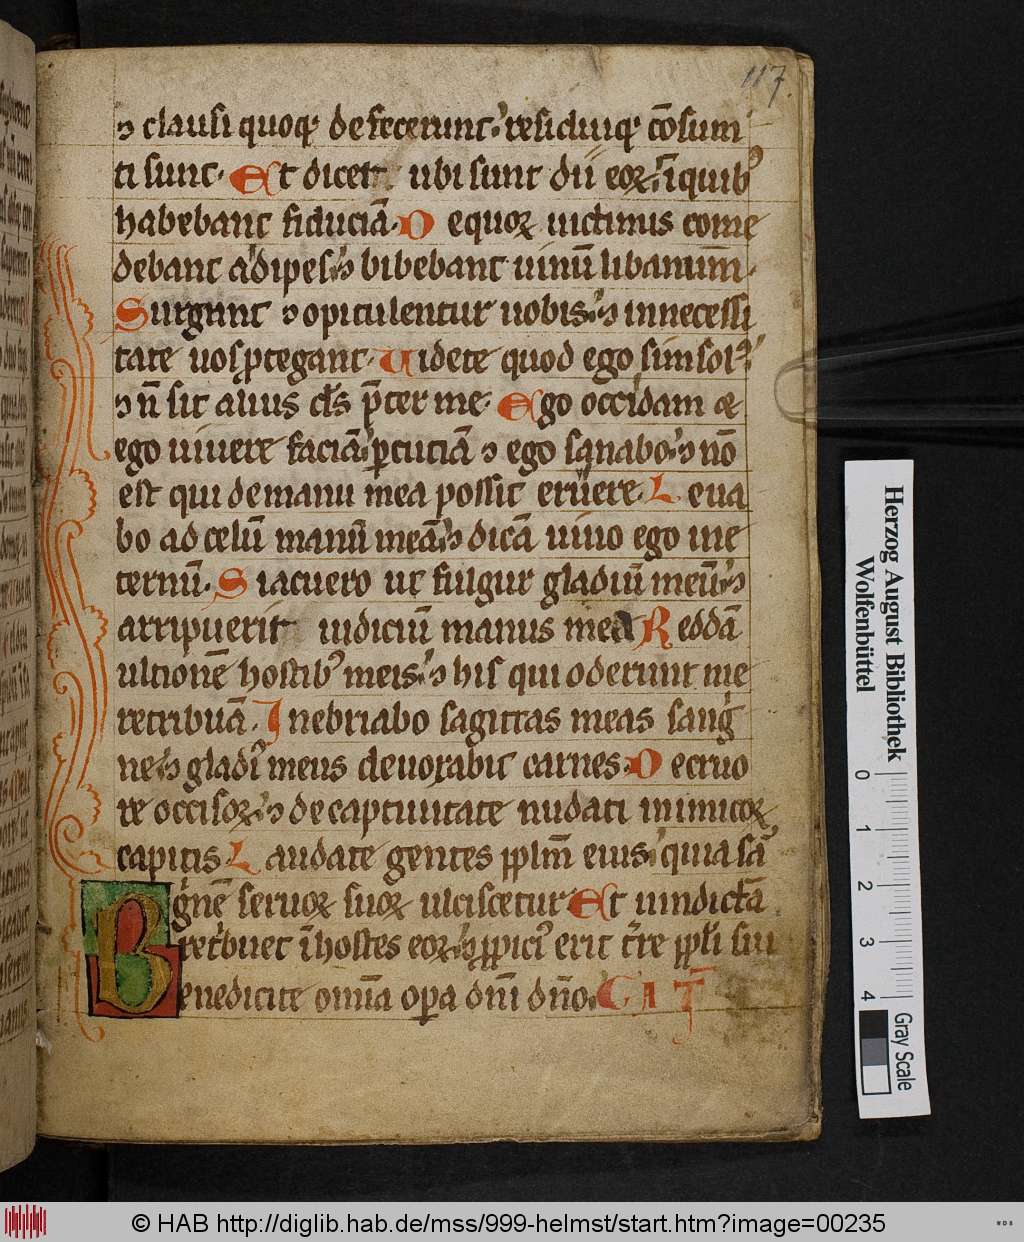 117.
⁊ clausi quoq; defecerunt. residuiq; cōsum
ti sunt. Et dicet ubi sunt dii eoꝝ. ī quib;
habebant fiduciā. De quoꝝ uictimis come
debant adipes. ⁊ bibebant uinū libaminū.
Surgant ⁊ opitulentur uobis. ⁊ in necessi
tate uos ꝓtegant. Uidete quod ego sim sol'
⁊ n̄ sit alius d̄s p̄ter me. Ego occidam et
ego uiuere faciā. ꝑcutiā ⁊ ego sanabo. ⁊ nō
est qui de manu mea possit eruere. Leua
bo ad celū manū meā. ⁊ dicā uiuo ego ine
ternū. Si acuero ut fulgur gladiū meū. ⁊
arripuerit iudiciū manus mea Reddā
ultionē hostib; meis. ⁊ his qui oderunt me
retribuā. Inebriabo sagittas meas sang
ne. ⁊ gladi' meus deuorabit carnes. De cruo
re occisoꝝ. ⁊ de captiuitate nudati inimicoꝝ
capitis. Laudate gentes ꝓplm̄ eius. quia sā
gnē seruoꝝ suoꝝ ulciscetur. Et uindictā
retbuet ī hostes eoꝝ. ⁊ ꝓpici' erit tr̄e ꝓpl̄i sui
Benedicite om̄ia oꝑa dn̄i dn̄o. CAT
Herzog August Bibliothek
Wolfenbüttel
0 1 2 3 4
Gray Scale
© HAB http://diglib.hab.de/mss/999-helmst/start.htm?image=00235